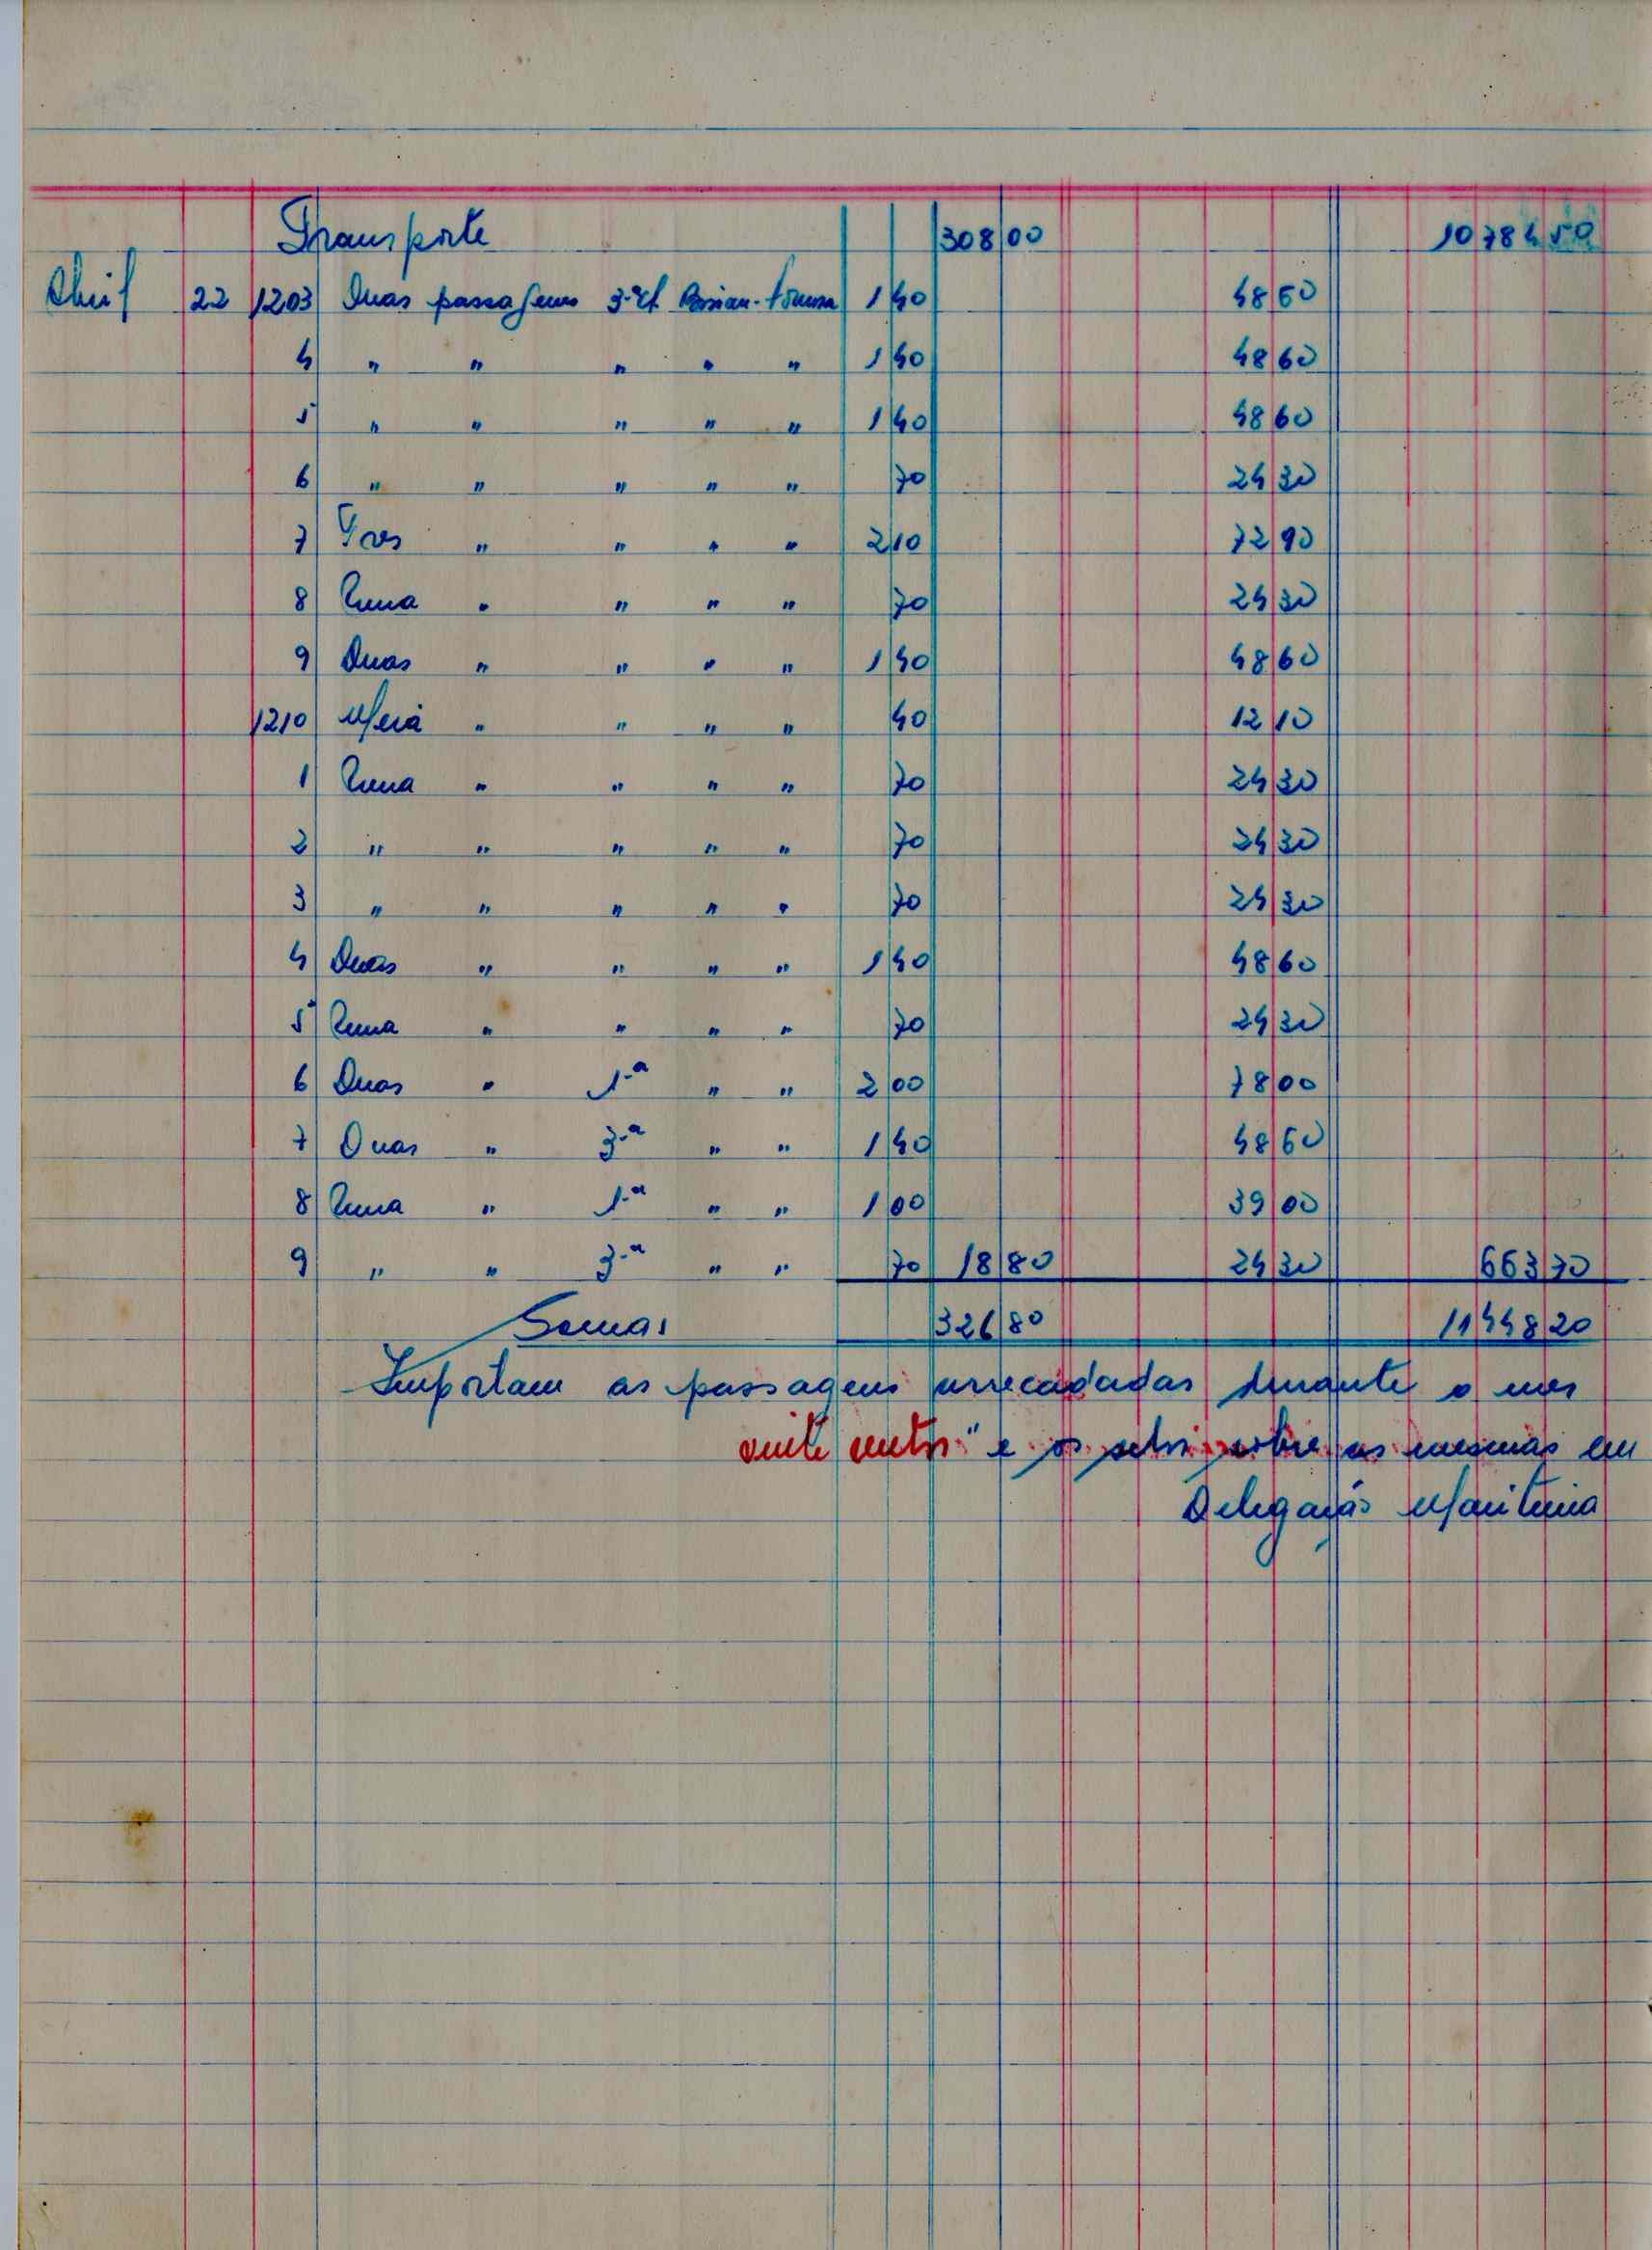 Transporte 308 00 10784 50
Abril 22 1203 Duas passagens 3-ª cl. 1 40 48 60
4 " " " " " 1 40 48 60
5 " " " " " 1 40 48 60
6 " " " " " 70 24 30
7 Tres " " " " 2 10 72 90
8 Uma " " " " 70 24 30
9 Duas " " " " 1 40 48 60
1210 Meia " " " " 40 12 10
1 Uma " " " " 70 24 30
2 " " " " " 70 24 30
3 " " " " " 70 24 30
4 Duas " " " " 1 40 48 60
5 Uma " " " " 70 24 30
6 Duas " 1-ª " " 2 00 78 00
7 Duas " 3-ª " " 1 40 48 60
8 Uma " 1-ª " " 1 00 39 00
9 " " 3-ª " " 70 18 80 24 30 663 70
Somas 326 80 11448 20
Importam as passagens arrecadadas durante o mes
oito centos" e os selos sobre as mesmas em
Delegação Maritima